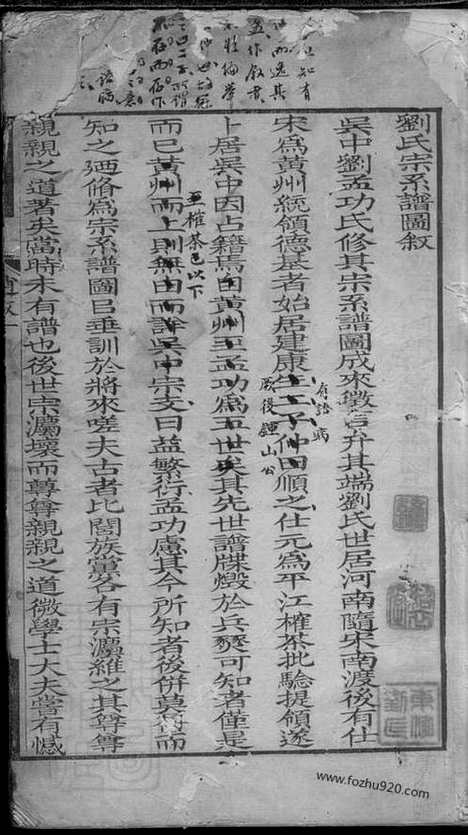 劉氏宗系譜圖叙
吳中劉孟功氏修其宗系譜圖成來徵言弁其端劉氏世居河南隨宋南渡後有仕
宋爲黃州統領德基者始居建康生二子仲曰順之仕元爲平江榷茶批驗提領遂
卜居吳中因占籍焉自黃州至孟功爲五世矣其先世譜牒燬於兵燹可知者僅是
而已黃州而上則無由而詳吳中宗支日益繁衍孟功慮其今所知者後併莫得而
知之廼脩爲宗系譜圖㠯垂訓於將來嗟夫古者比閭族黨各有宗灋維之其尊尊
親親之道著矣當時未有譜也後世宗灋壞而尊尊親親之道微學士大夫嘗有憾
有語病
至榷茶已以下
www.fozhu920.com